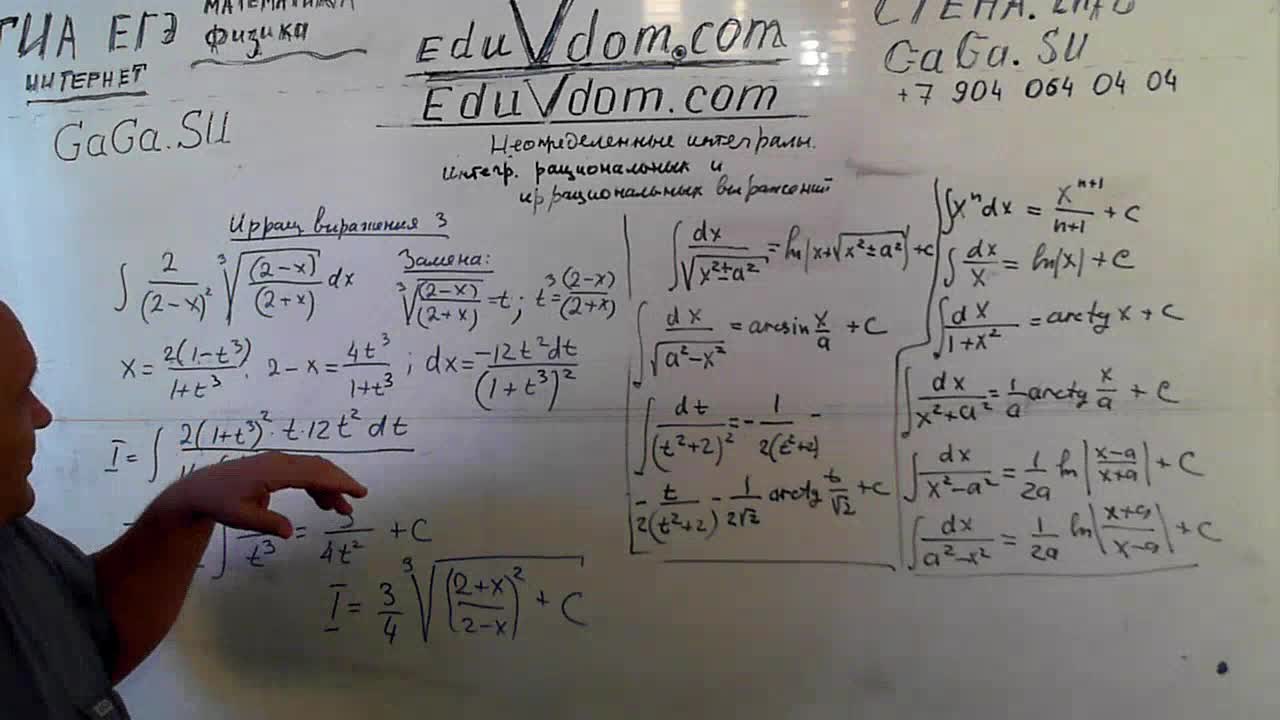 ГИА ЕГЭ
МАТЕМАТИКА
физика
ИНТЕРНЕТ
GaGa.SU
EduVdom.com
EduVdom.com
GaGa.SU
+7 904 064 04 04
Неопределенные интегралы.
Интегр. рациональных и
иррациональных выражений
Иррац выражения 3
∫ 2/(2-x)² ∛((2-x)/(2+x)) dx
Замена:
∛((2-x)/(2+x)) = t; t³ = (2-x)/(2+x)
x = 2(1-t³)/(1+t³). 2-x = 4t³/(1+t³); dx = -12t²dt/(1+t³)²
I = ∫ 2(1+t³)²·t·12t²dt
∫ /t³ = 3/(4t²) + C
I = 3/4 ∛((2+x)/(2-x))² + C
∫ dx/√(x²±a²) = ln|x+√(x²±a²)|+C
∫ dx/√(a²-x²) = arcsin x/a + C
∫ dt/(t²+2)² = - 1/(2(t²+2)) -
- t/(2(t²+2)) - 1/(2√2) arctg t/√2 + C
∫ xⁿdx = xⁿ⁺¹/(n+1) + C
∫ dx/x = ln|x| + C
∫ dx/(1+x²) = arctg x + C
∫ dx/(x²+a²) = 1/a arctg x/a + C
∫ dx/(x²-a²) = 1/(2a) ln|(x-a)/(x+a)| + C
∫ dx/(a²-x²) = 1/(2a) ln|(x+a)/(x-a)| + C